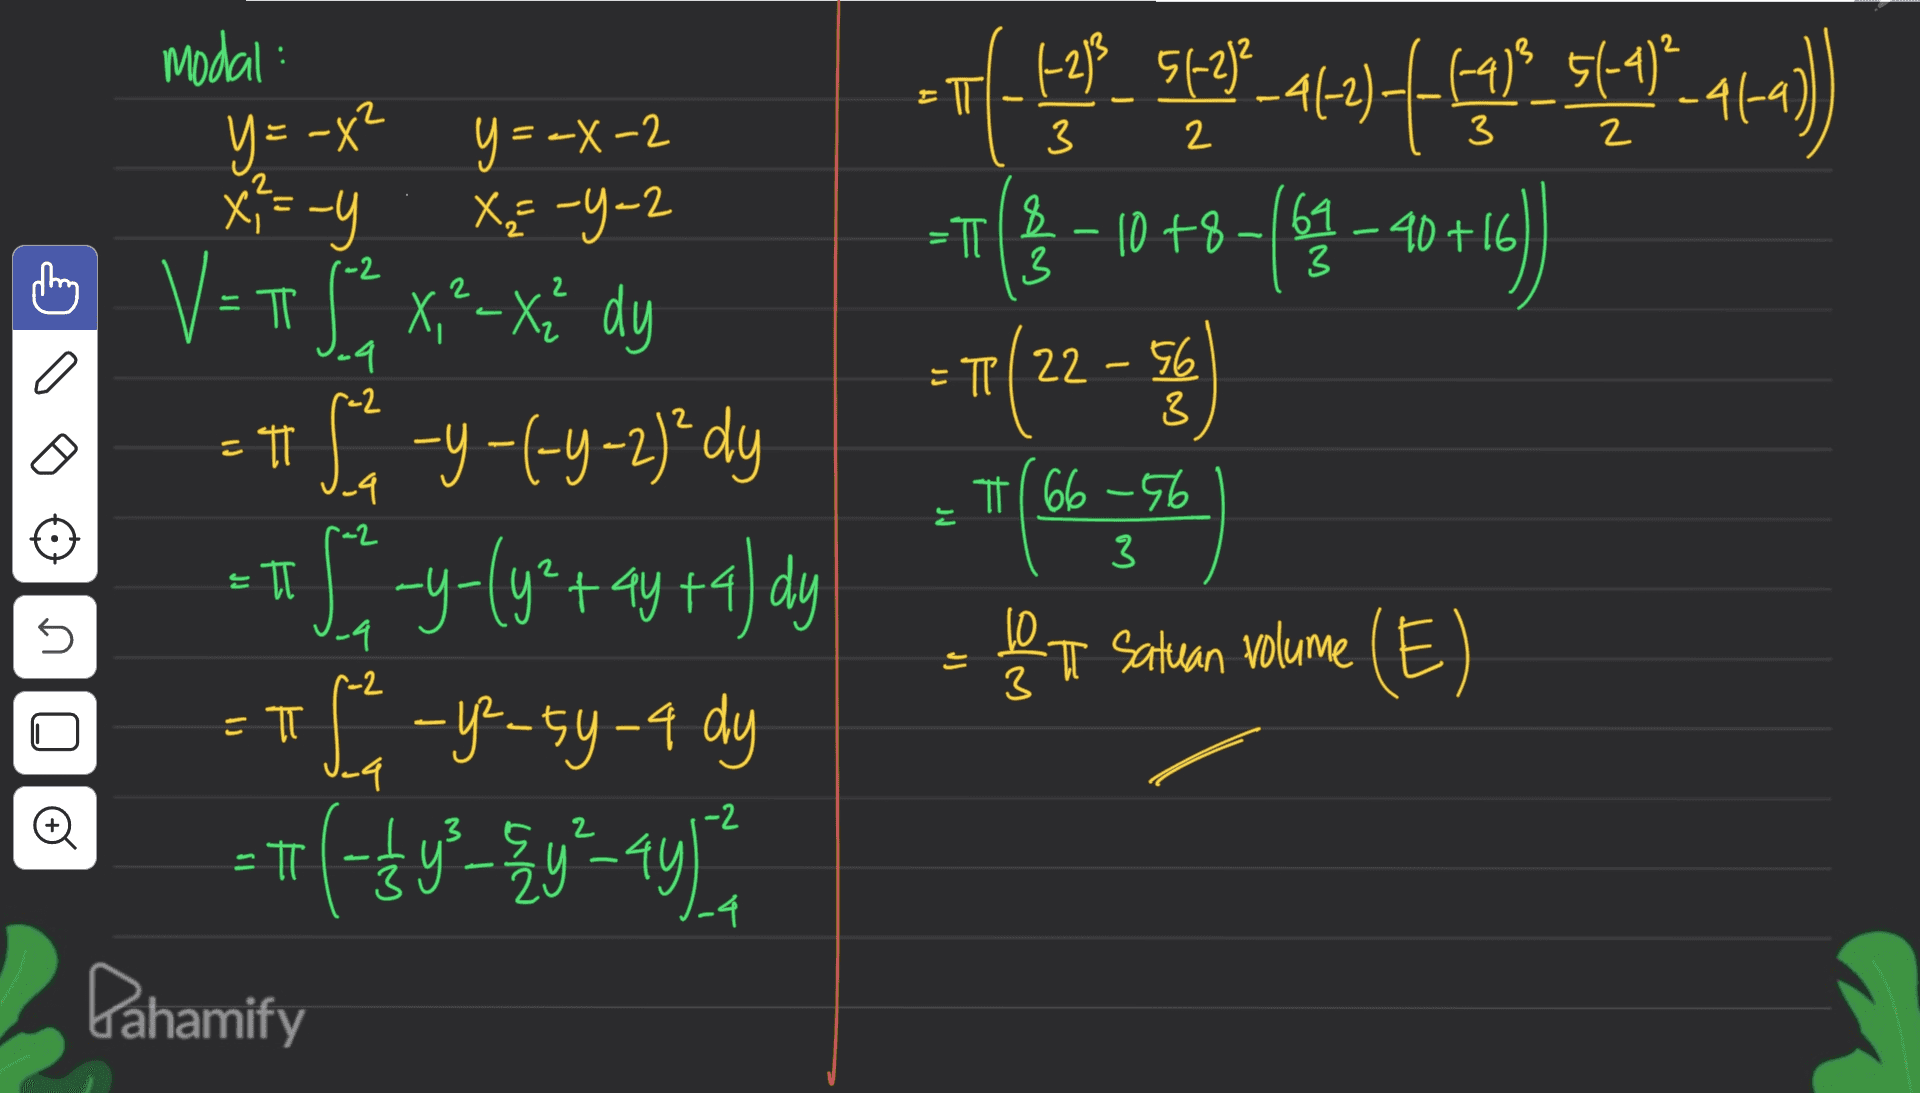 modal :
y = -x²   y = -x - 2
x₁² = -y   x₂ = -y - 2
V = π ∫₋₄⁻² x₁² - x₂² dy
= π ∫₋₄⁻² -y - (-y - 2)² dy
= π ∫₋₄⁻² -y - (y² + 4y + 4) dy
= π ∫₋₄⁻² -y² - 5y - 4 dy
= π (-1/3 y³ - 5/2 y² - 4y)₋₄⁻²
= π (- (-2)³/3 - 5(-2)²/2 - 4(-2) - (- (-4)³/3 - 5(-4)²/2 - 4(-4)))
= π (8/3 - 10 + 8 - (64/3 - 40 + 16))
= π (22 - 56/3)
= π ((66 - 56)/3)
= 10/3 π Satuan volume (E)
Pahamify